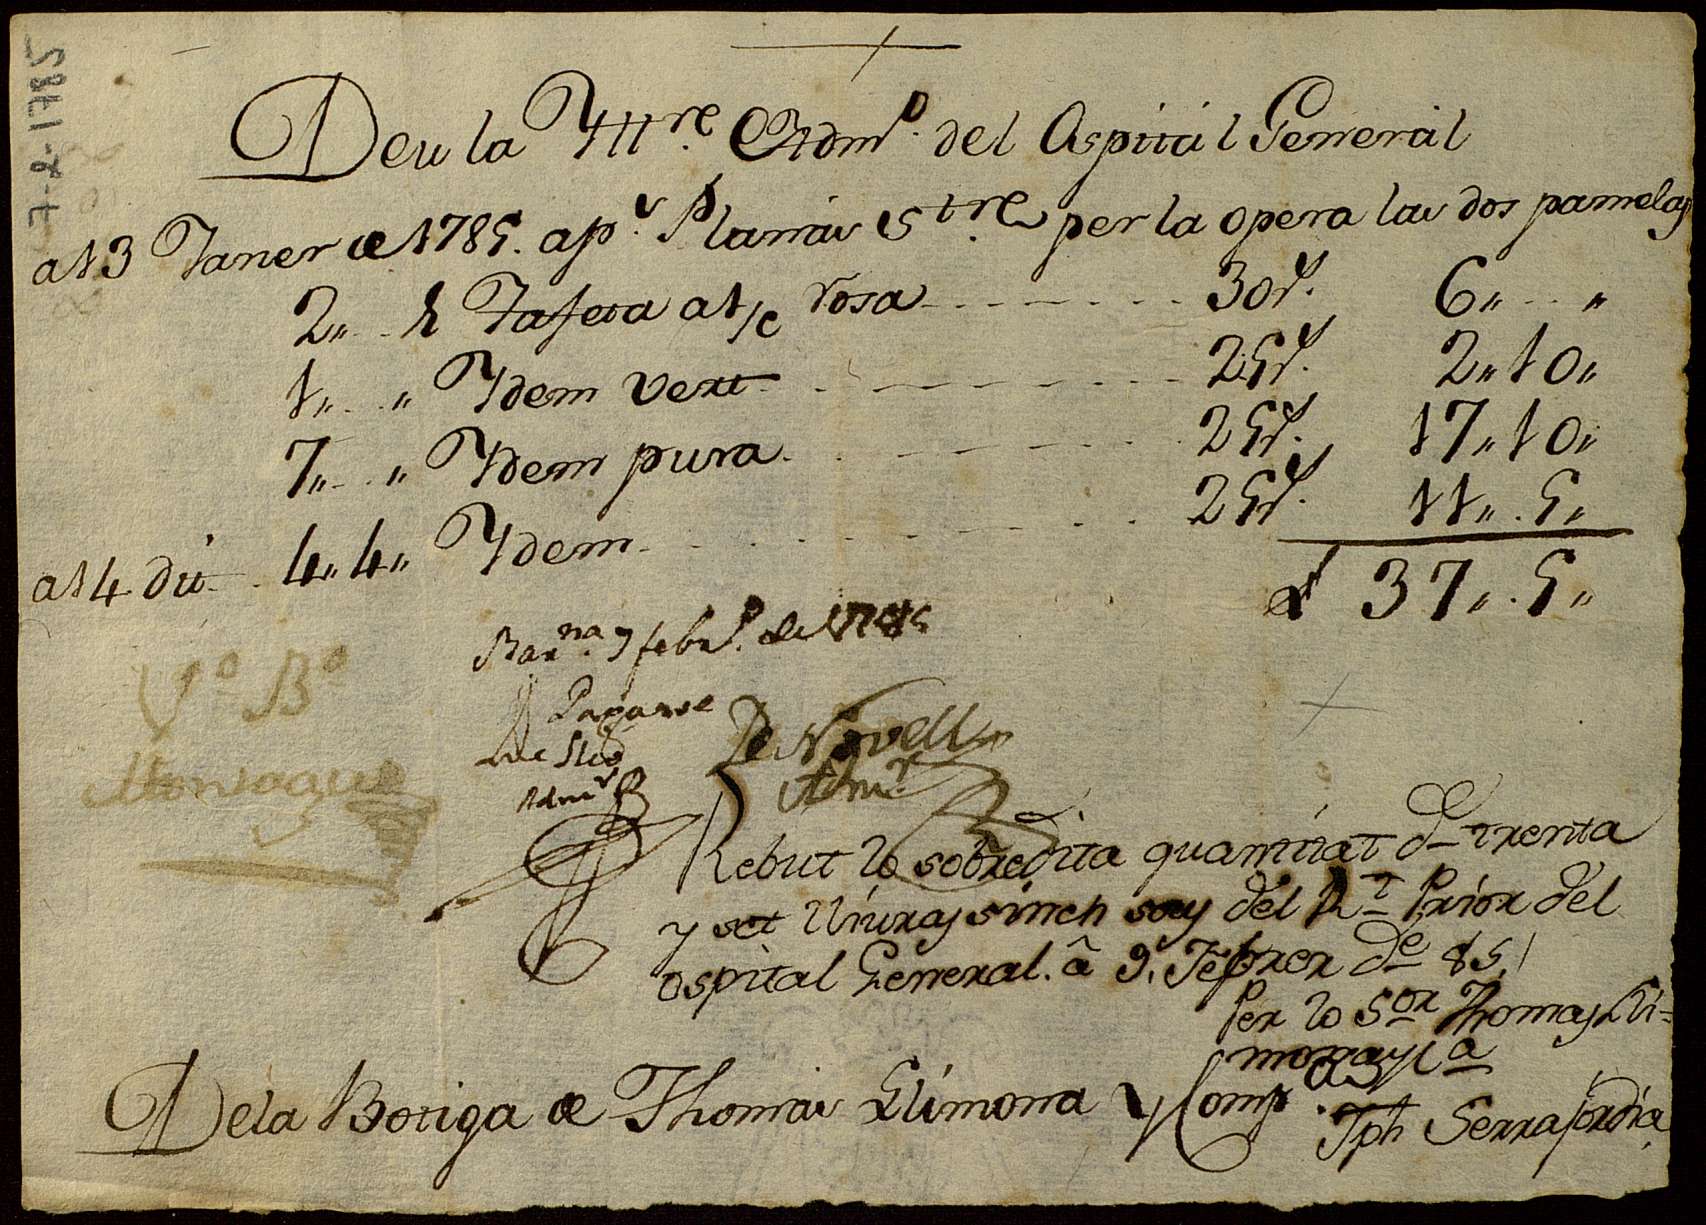 7-2-1785
Deu la Ill.re Adm.º del Ospital General
at 13 Janer de 1785. ap.r Planas S.tre per la opera las dos pamelas
2,, .. Tafeta at/c rosa 30 r. 6,, .. ,,
1,, .. ,, Idem vert 25 r. 2,, 10,,
7,, .. ,, Idem pura 25 r. 17,, 10,,
at 14 dit 4,, 4,, Idem 25 r. 11,, . 5,,
£ 37,, . 5,,
Bar.na 9 febr.º de 1785
V.º B.º
Pagarse
De Novell
Adm.r
Adm.r
Rebut lo sobredita quantitat d trenta
y set lliuras sinch sous del R.t Prior del
ospital General. â 9. Febrer de 85.
Per lo S.or Thomas Lli=
mona y C.a
Dela Botiga de Thomas Llimona y Comp.a
Jph Serrajordia